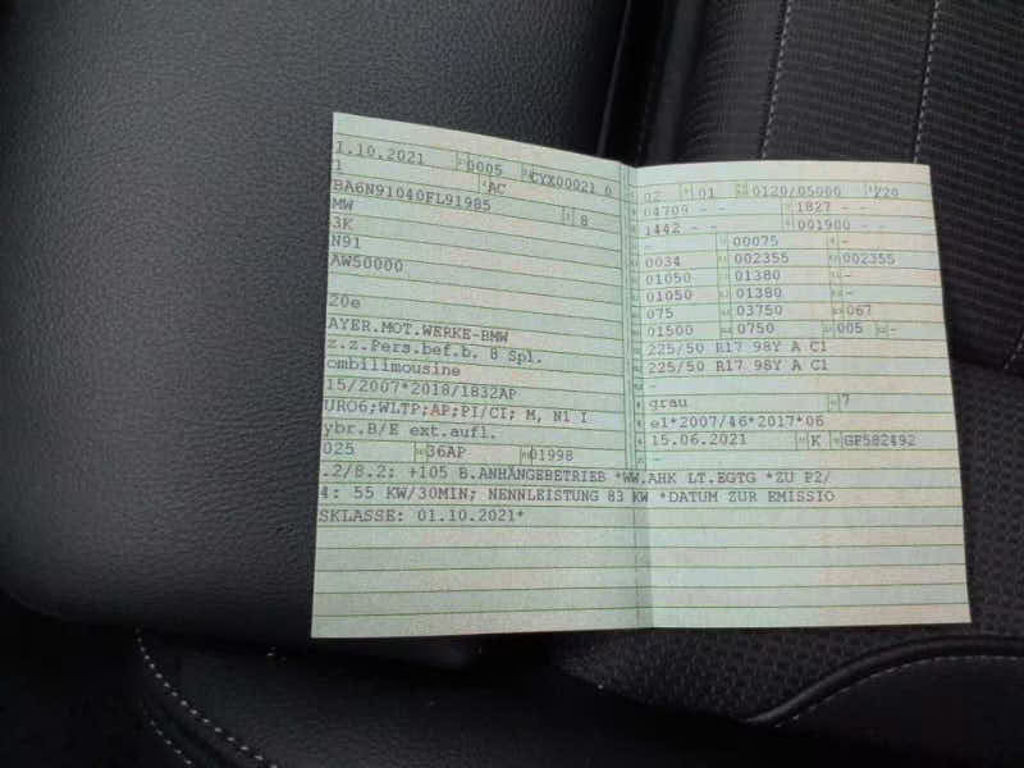 1.10.2021 0005 CYX00021 0
1 AC
BA6N91040FL91985 8
MW
3K
N91
AW50000
20e
AYER.MOT.WERKE-BMW
z.z.Pers.bef.b. 8 Spl.
ombilimousine
15/2007*2018/1832AP
URO6;WLTP;AP;PI/CI; M, N1 I
ybr.B/E ext.aufl.
025 36AP 01998
02 01 0120/05000 220
04709 - - 1827 - -
1442 - - 001900 - -
- 00075 -
0034 002355 002355
01050 01380 -
01050 01380 -
075 03750 067
01500 0750 005 -
225/50 R17 98Y A C1
225/50 R17 98Y A C1
-
grau 7
e1*2007/46*2017*06
15.06.2021 K GF582492
-
.2/8.2: +105 B.ANHÄNGEBETRIEB *WW.AHK LT.EGTG *ZU P2/
4: 55 KW/30MIN; NENNLEISTUNG 83 KW *DATUM ZUR EMISSIO
SKLASSE: 01.10.2021*